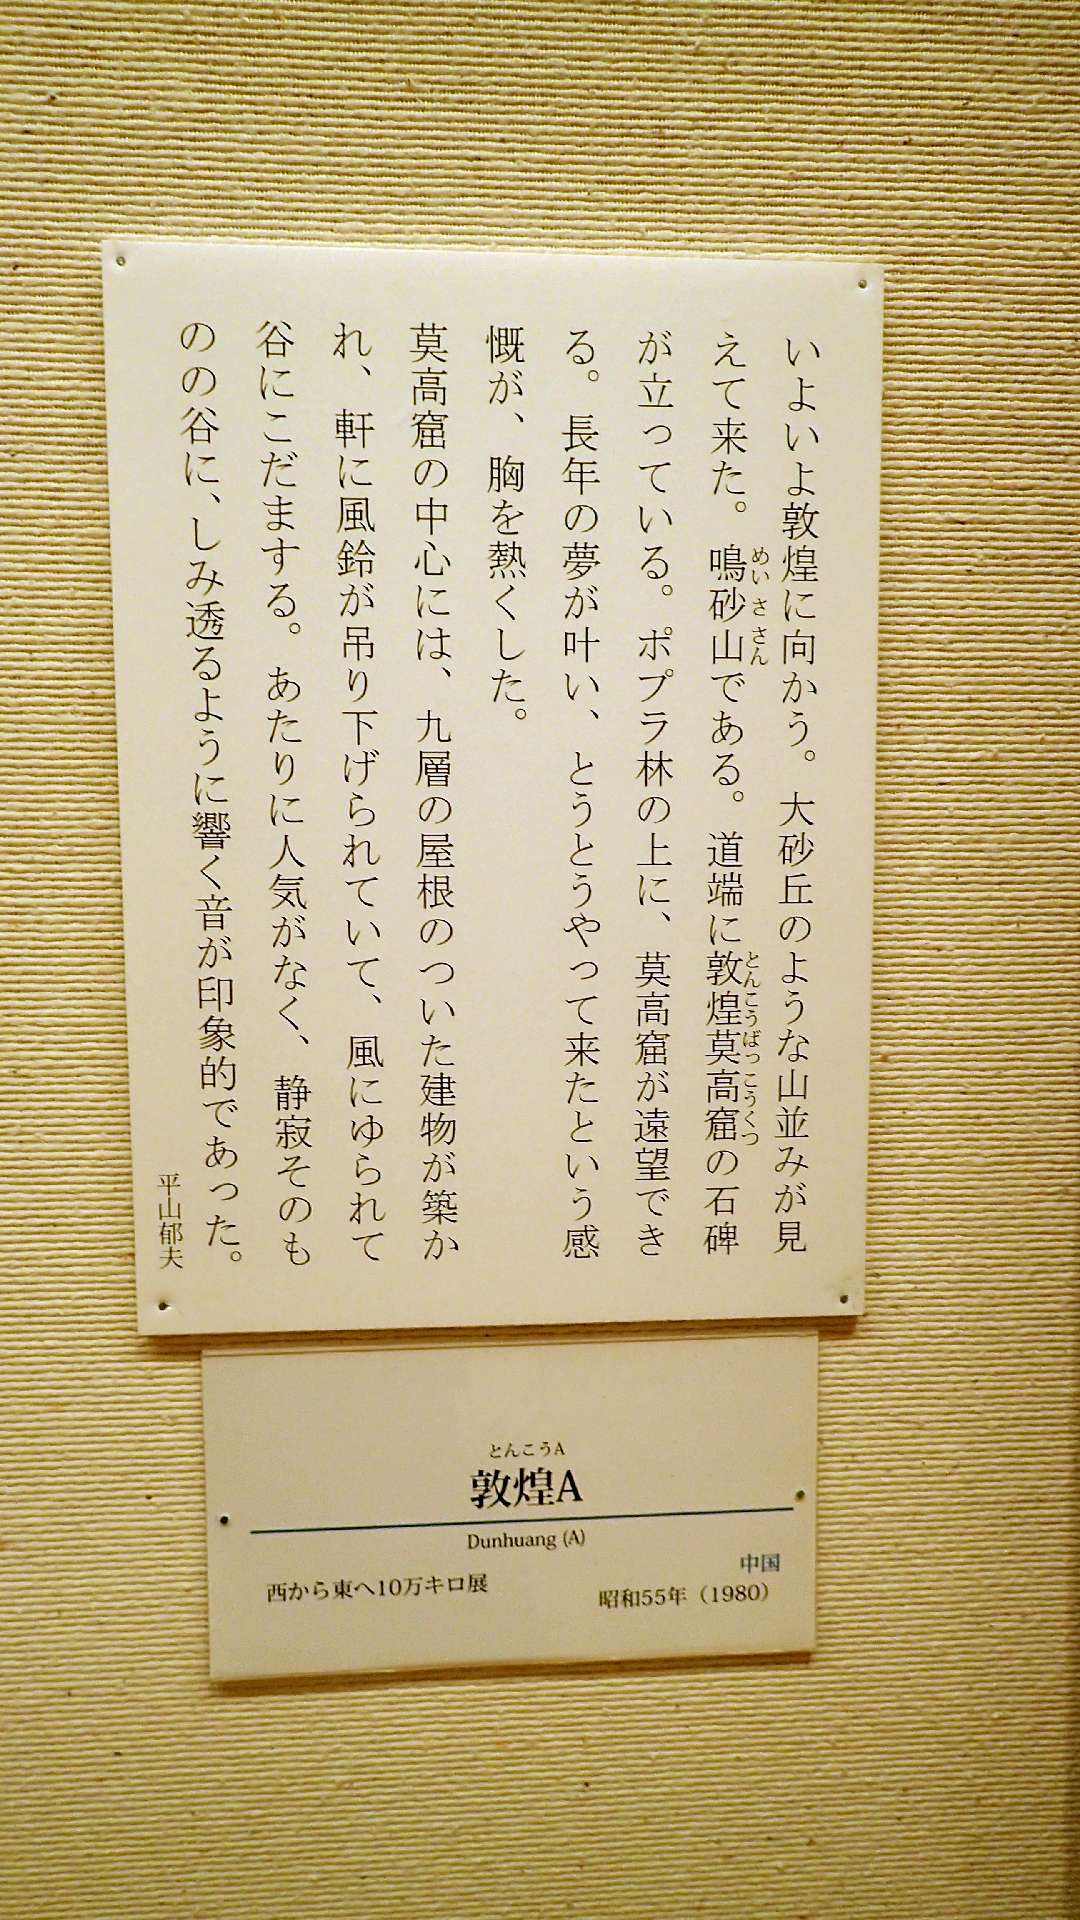 いよいよ敦煌に向かう。大砂丘のような山並みが見
えて来た。鳴砂山である。道端に敦煌莫高窟の石碑
めいささん
とんこうばっこうくつ
が立っている。ポプラ林の上に、莫高窟が遠望でき
る。長年の夢が叶い、とうとうやって来たという感
慨が、胸を熱くした。
莫高窟の中心には、九層の屋根のついた建物が築か
れ、軒に風鈴が吊り下げられていて、風にゆられて
谷にこだまする。あたりに人気がなく、静寂そのも
のの谷に、しみ透るように響く音が印象的であった。
平山郁夫
とんこうA
敦煌A
Dunhuang (A)
中国
西から東へ10万キロ展
昭和55年（1980）